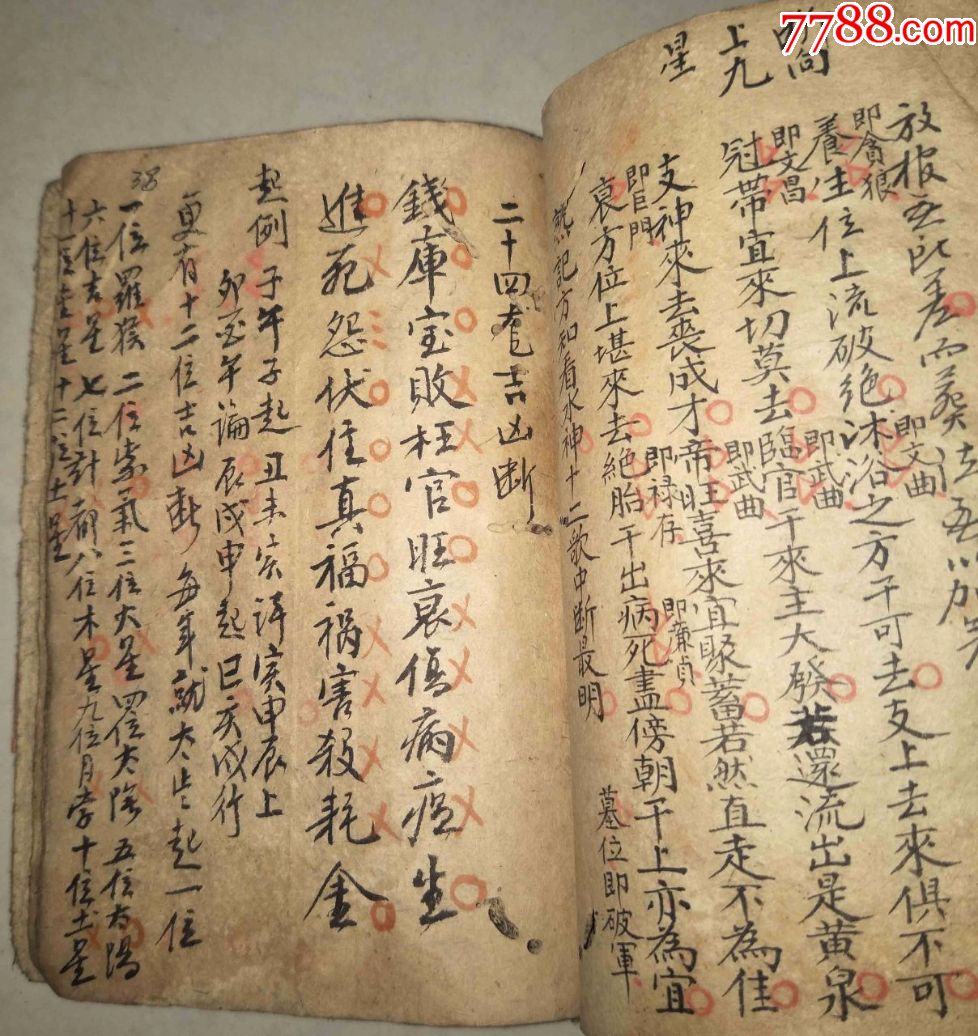 7788.com
上九
星
即文曲
養生位上流破絶沐浴之方干可去支上去來俱不可
即貪狼
即文昌
即武曲
冠帶宜來切莫去臨官干來主大發若還流出是黃泉
即武曲
支神來去喪成才帝旺喜來宜聚蓄若然直走不為佳
即官門
即禄存
即廉貞
衰方位上堪來去絶胎干出病死盡傍朝干上亦為宜
墓位即破軍
熟記方知看水神十二歌中断最明
二十四 吉凶断
錢庫宝敗旺官旺衰傷病瘟生
進死怨伏住真福禍害殺耗金
起例 子午子起丑未寅 寅申辰上
卯酉午論辰戌申起巳亥戌行
更有十二位吉凶断 每年就太 起一位
一位羅猴 二位紫氣 三位火星 四位太陰 五位太陽
六位吉星 七位計都 八位木星 九位月孛 十位土星
十一位金星 十二位土星